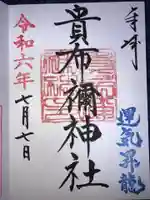 奉拝
貴布禰神社
令和六年
七月七日
運気昇龍